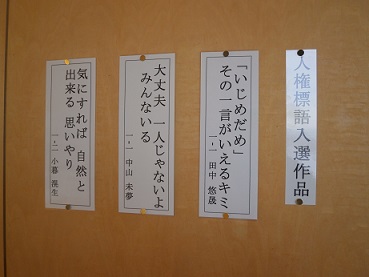 人権標語入選作品
「いじめだめ」
その一言がいえるキミ
一・一 田中 悠晟
大丈夫 一人じゃないよ
みんないる
一・一 中山 未夢
気にすれば 自然と
出来る 思いやり
一・一 小暮 滉生